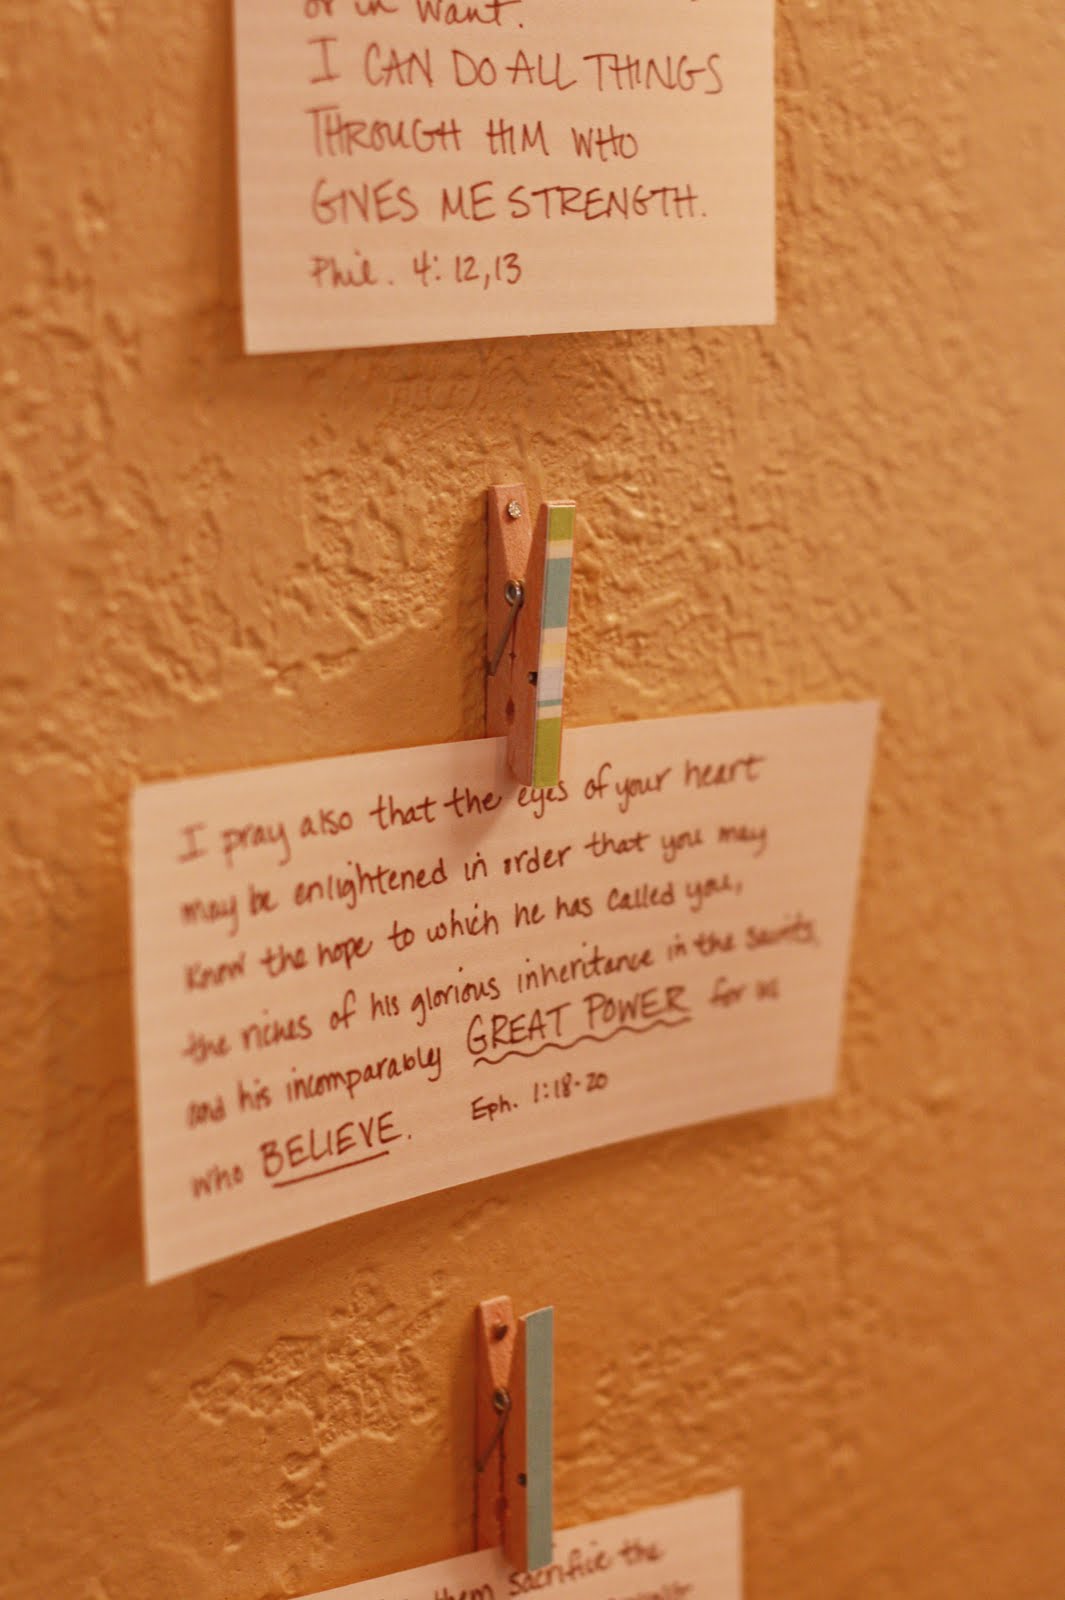 or in want.
I CAN DO ALL THINGS
THROUGH HIM WHO
GIVES ME STRENGTH.
Phil. 4:12,13
I pray also that the eyes of your heart
may be enlightened in order that you may
know the hope to which he has called you,
the riches of his glorious inheritance in the saints,
and his incomparably GREAT POWER for us
who BELIEVE. Eph. 1:18-20
them sacrifice the